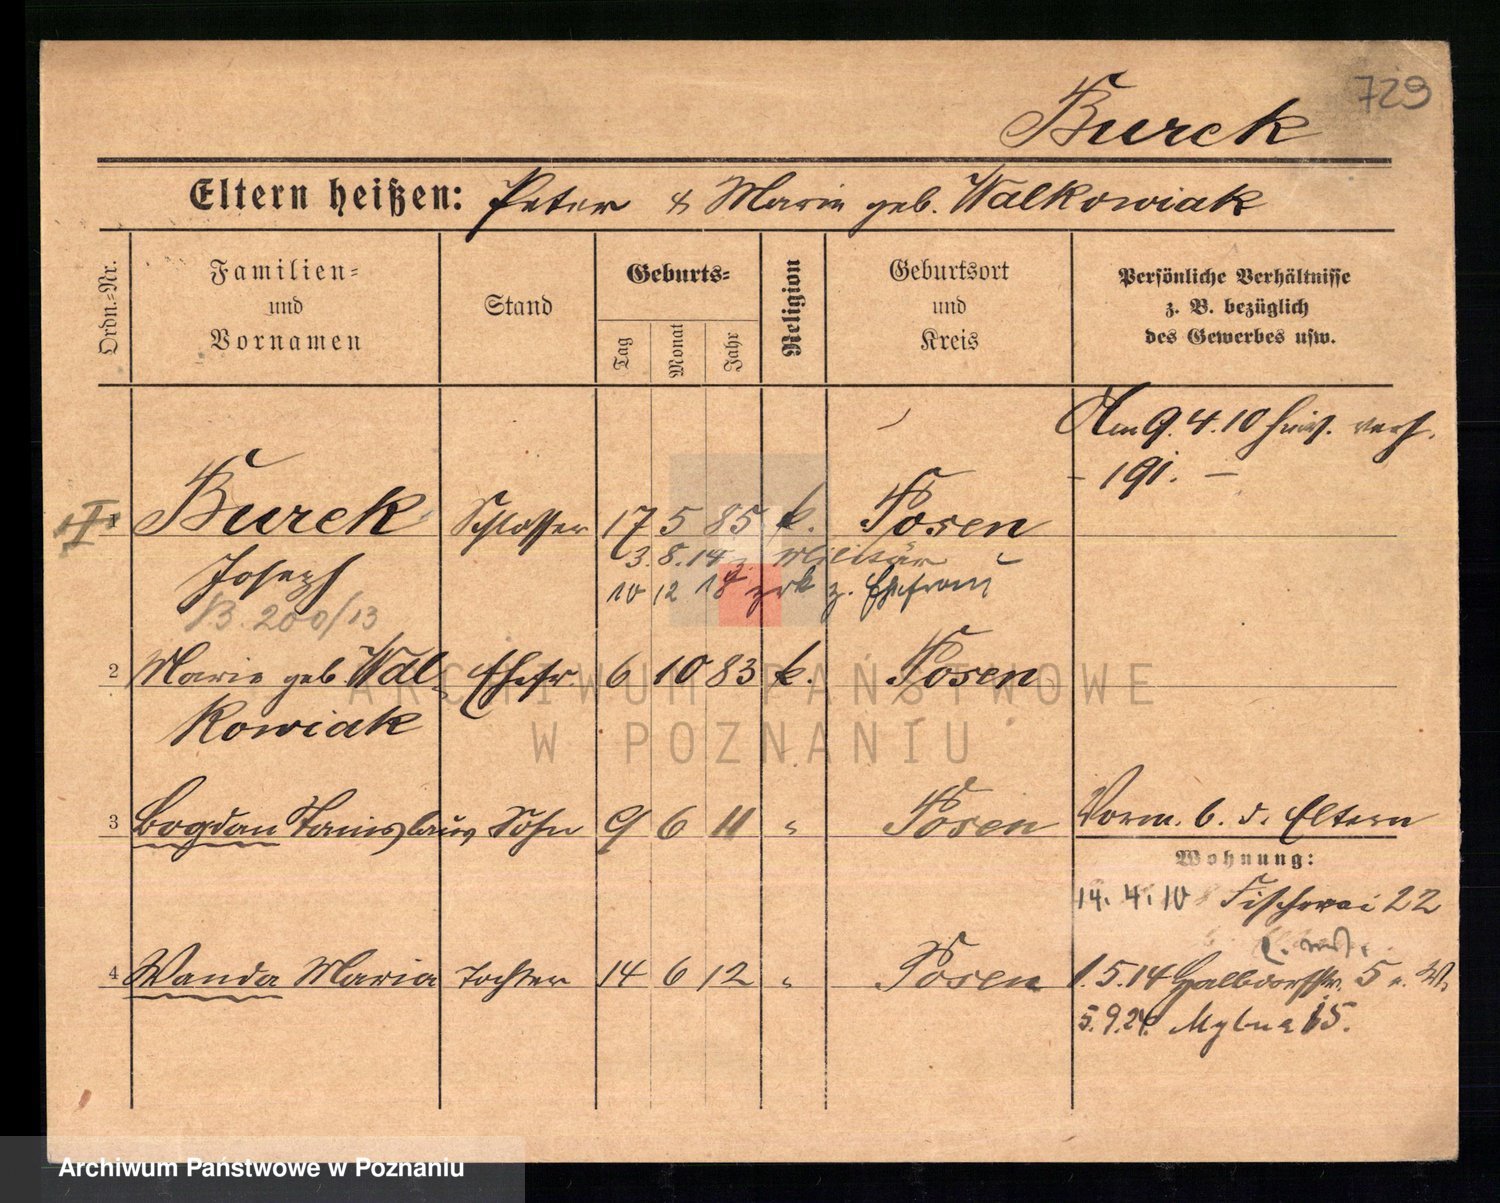 729
Burek
Eltern heißen: Peter & Marie geb. Walkowiak
Ordn.-Nr.
Familien-
und
Vornamen
Stand
Geburts-
Tag
Monat
Jahr
Religion
Geburtsort
und
Kreis
Persönliche Verhältnisse
z. B. bezüglich
des Gewerbes usw.
Am 9.4.10 hier verh.
- 191. -
1 Burek Schlosser 17 5 85 k. Posen
3.8.14 z. Militär
Joseph
10 12 18 zrk z. Ehefrau
B. 200/13
2 Marie geb. Wal- Ehefr. 6 10 83 k. Posen
kowiak
3 Bogdan Stanislaus Sohn 9 6 11 " Posen
Vorm. b. d. Eltern
Wohnung:
14.4.10 Fischerei 22
4 Wanda Maria Tochter 14 6 12 " Posen
1.5.14 Halbdorfstr. 5 W.
5.9.24. Mylna 15.
ARCHIWUM PAŃSTWOWE
W POZNANIU
Archiwum Państwowe w Poznaniu